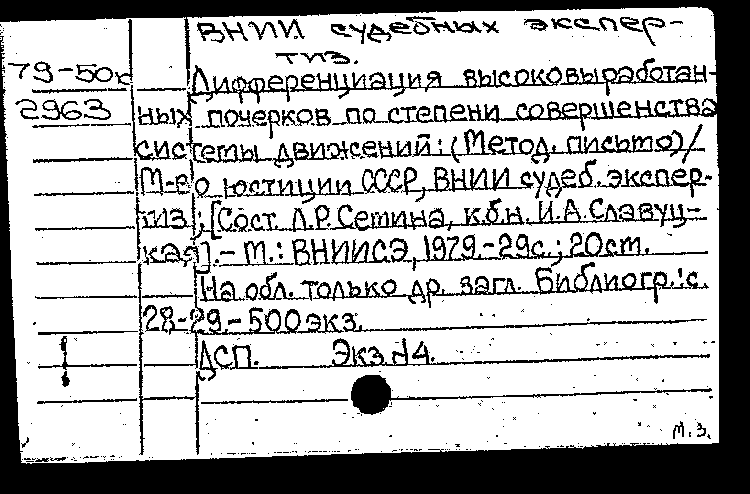 ВНИИ судебных экспер-
тиз.
79-50к
Дифференциация высоковыработан-
2963
ных почерков по степени совершенства
системы движений: (Метод. письмо) /
М-во юстиции СССР, ВНИИ судеб. экспер-
тиз; [Сост. Л.Р. Сетина, к.б.н. И.А. Славуц-
кая]. – М.: ВНИИСЭ, 1979.-29с.; 20см.
На обл. только др. загл. Библиогр.: с.
28-29.-500 экз.
ДСП. Экз.
М.З.